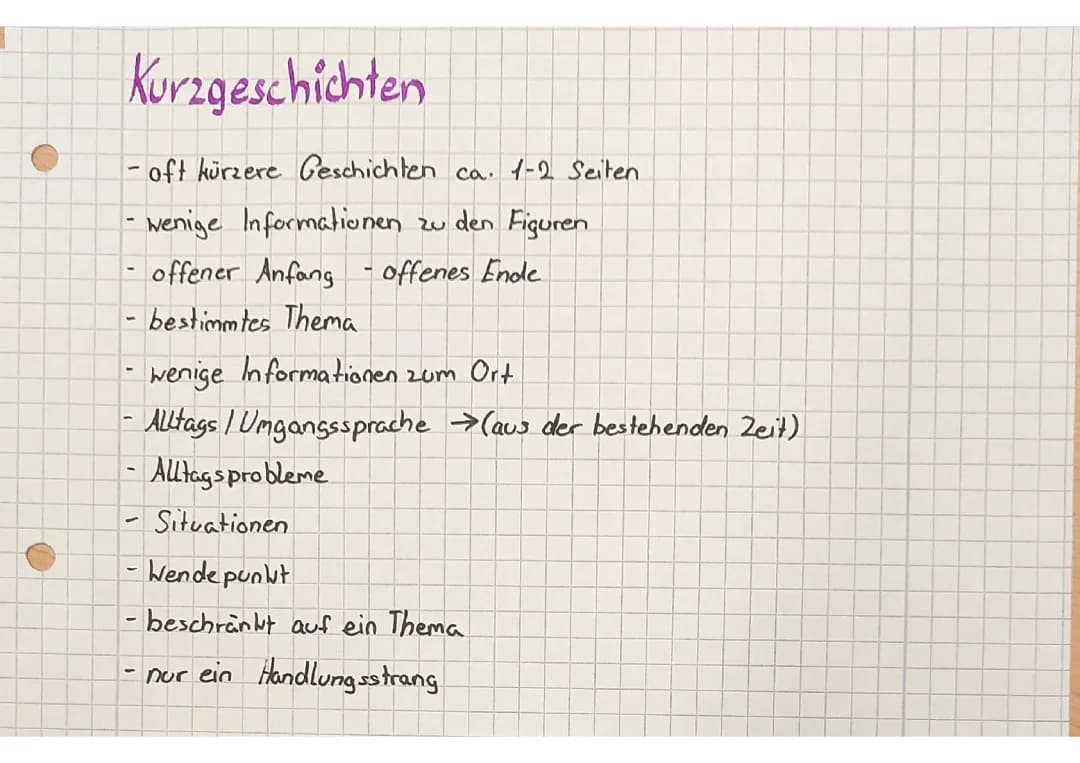 Kurzgeschichten
- oft kürzere Geschichten ca. 1-2 Seiten
- wenige Informationen zu den Figuren
- offener Anfang - offenes Ende
- bestimmtes Thema
- wenige Informationen zum Ort
- Alltags / Umgangssprache → (aus der bestehenden Zeit)
- Alltagsprobleme
- Situationen
- Wendepunkt
- beschränkt auf ein Thema
- nur ein Handlungsstrang